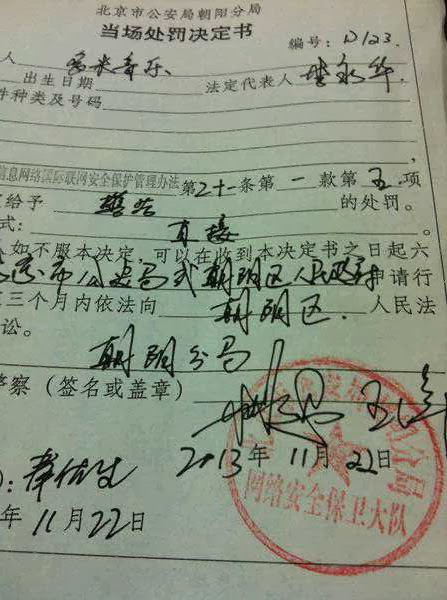 北京市公安局朝阳分局
当场处罚决定书
编号：D123.
人 多米音乐
出生日期 法定代表人
件种类及号码
信息网络国际联网安全保护管理办法第二十一条第一款第五项
给予 警告 的处罚。
式： 直接 。
如不服本决定，可以在收到本决定书之日起六
市公安局或朝阳区人民政府申请行
三个月内依法向 朝阳区 人民法
讼。
朝阳分局
警察（签名或盖章）
2013年11月22日
网络安全保卫大队
年11月22日